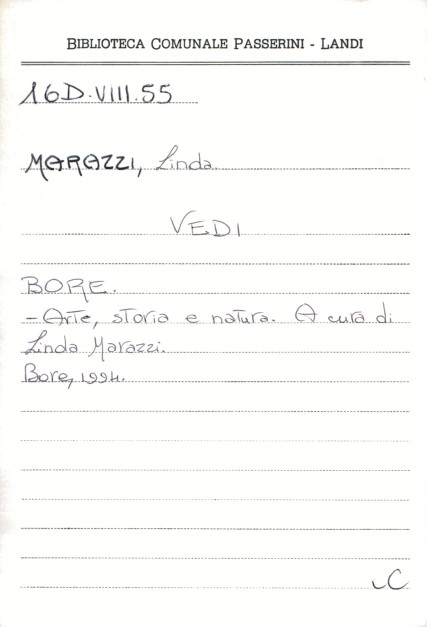 BIBLIOTECA COMUNALE PASSERINI - LANDI
16D.VIII.55
MARAZZI, Linda
VEDI
BORE.
- Arte, storia e natura. A cura di
Linda Marazzi.
Bore, 1994.
C